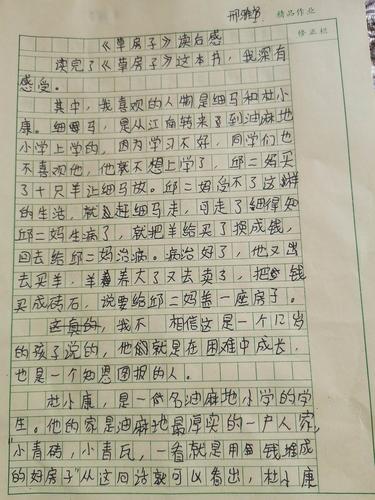 邢雅
精品作业
修正栏
《草房子》读后感
读完了《草房子》这本书，我深有
感受。
其中，我喜欢的人物是细马和杜小
康。细马，是从江南转来了到油麻地
小学上学的，因为学习不好，同学们也
不喜欢他，他就不想上学了，邱二妈买
了十只羊让细马放。邱二妈忍不了这样
的生活，就赶细马走，可走了细得知
邱二妈生病了，就把羊给买了换成钱，
回去给邱二妈治病。病治好了，他又出
去买羊，羊养大了又去卖了，把钱
买成砖石，说要给邱二妈盖一座房子。
这真的，我不 相信这是一个12岁
的孩子说的，他们就是在困难中成长，
也是一个知恩图报的人。
杜小康，是一名油麻地小学的学
生。他的家是油麻地最厚实的一户人家，
"小青砖，小青瓦，一看就是用钱堆成
的好房子"从这句话就可以看出，杜小康